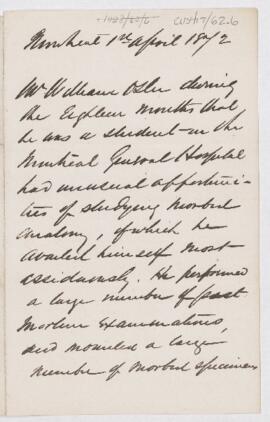 CUS17/62.6
Montreal 1st April 1872
Mr William Osler during
the Eighteen months that
he was a student in the
Montreal General Hospital
had unusual opportuni-
ties of studying morbid
anatomy, of which he
availed himself most
assiduously. He performed
a large number of post
mortem examinations,
and mounted a large
number of morbid specimens